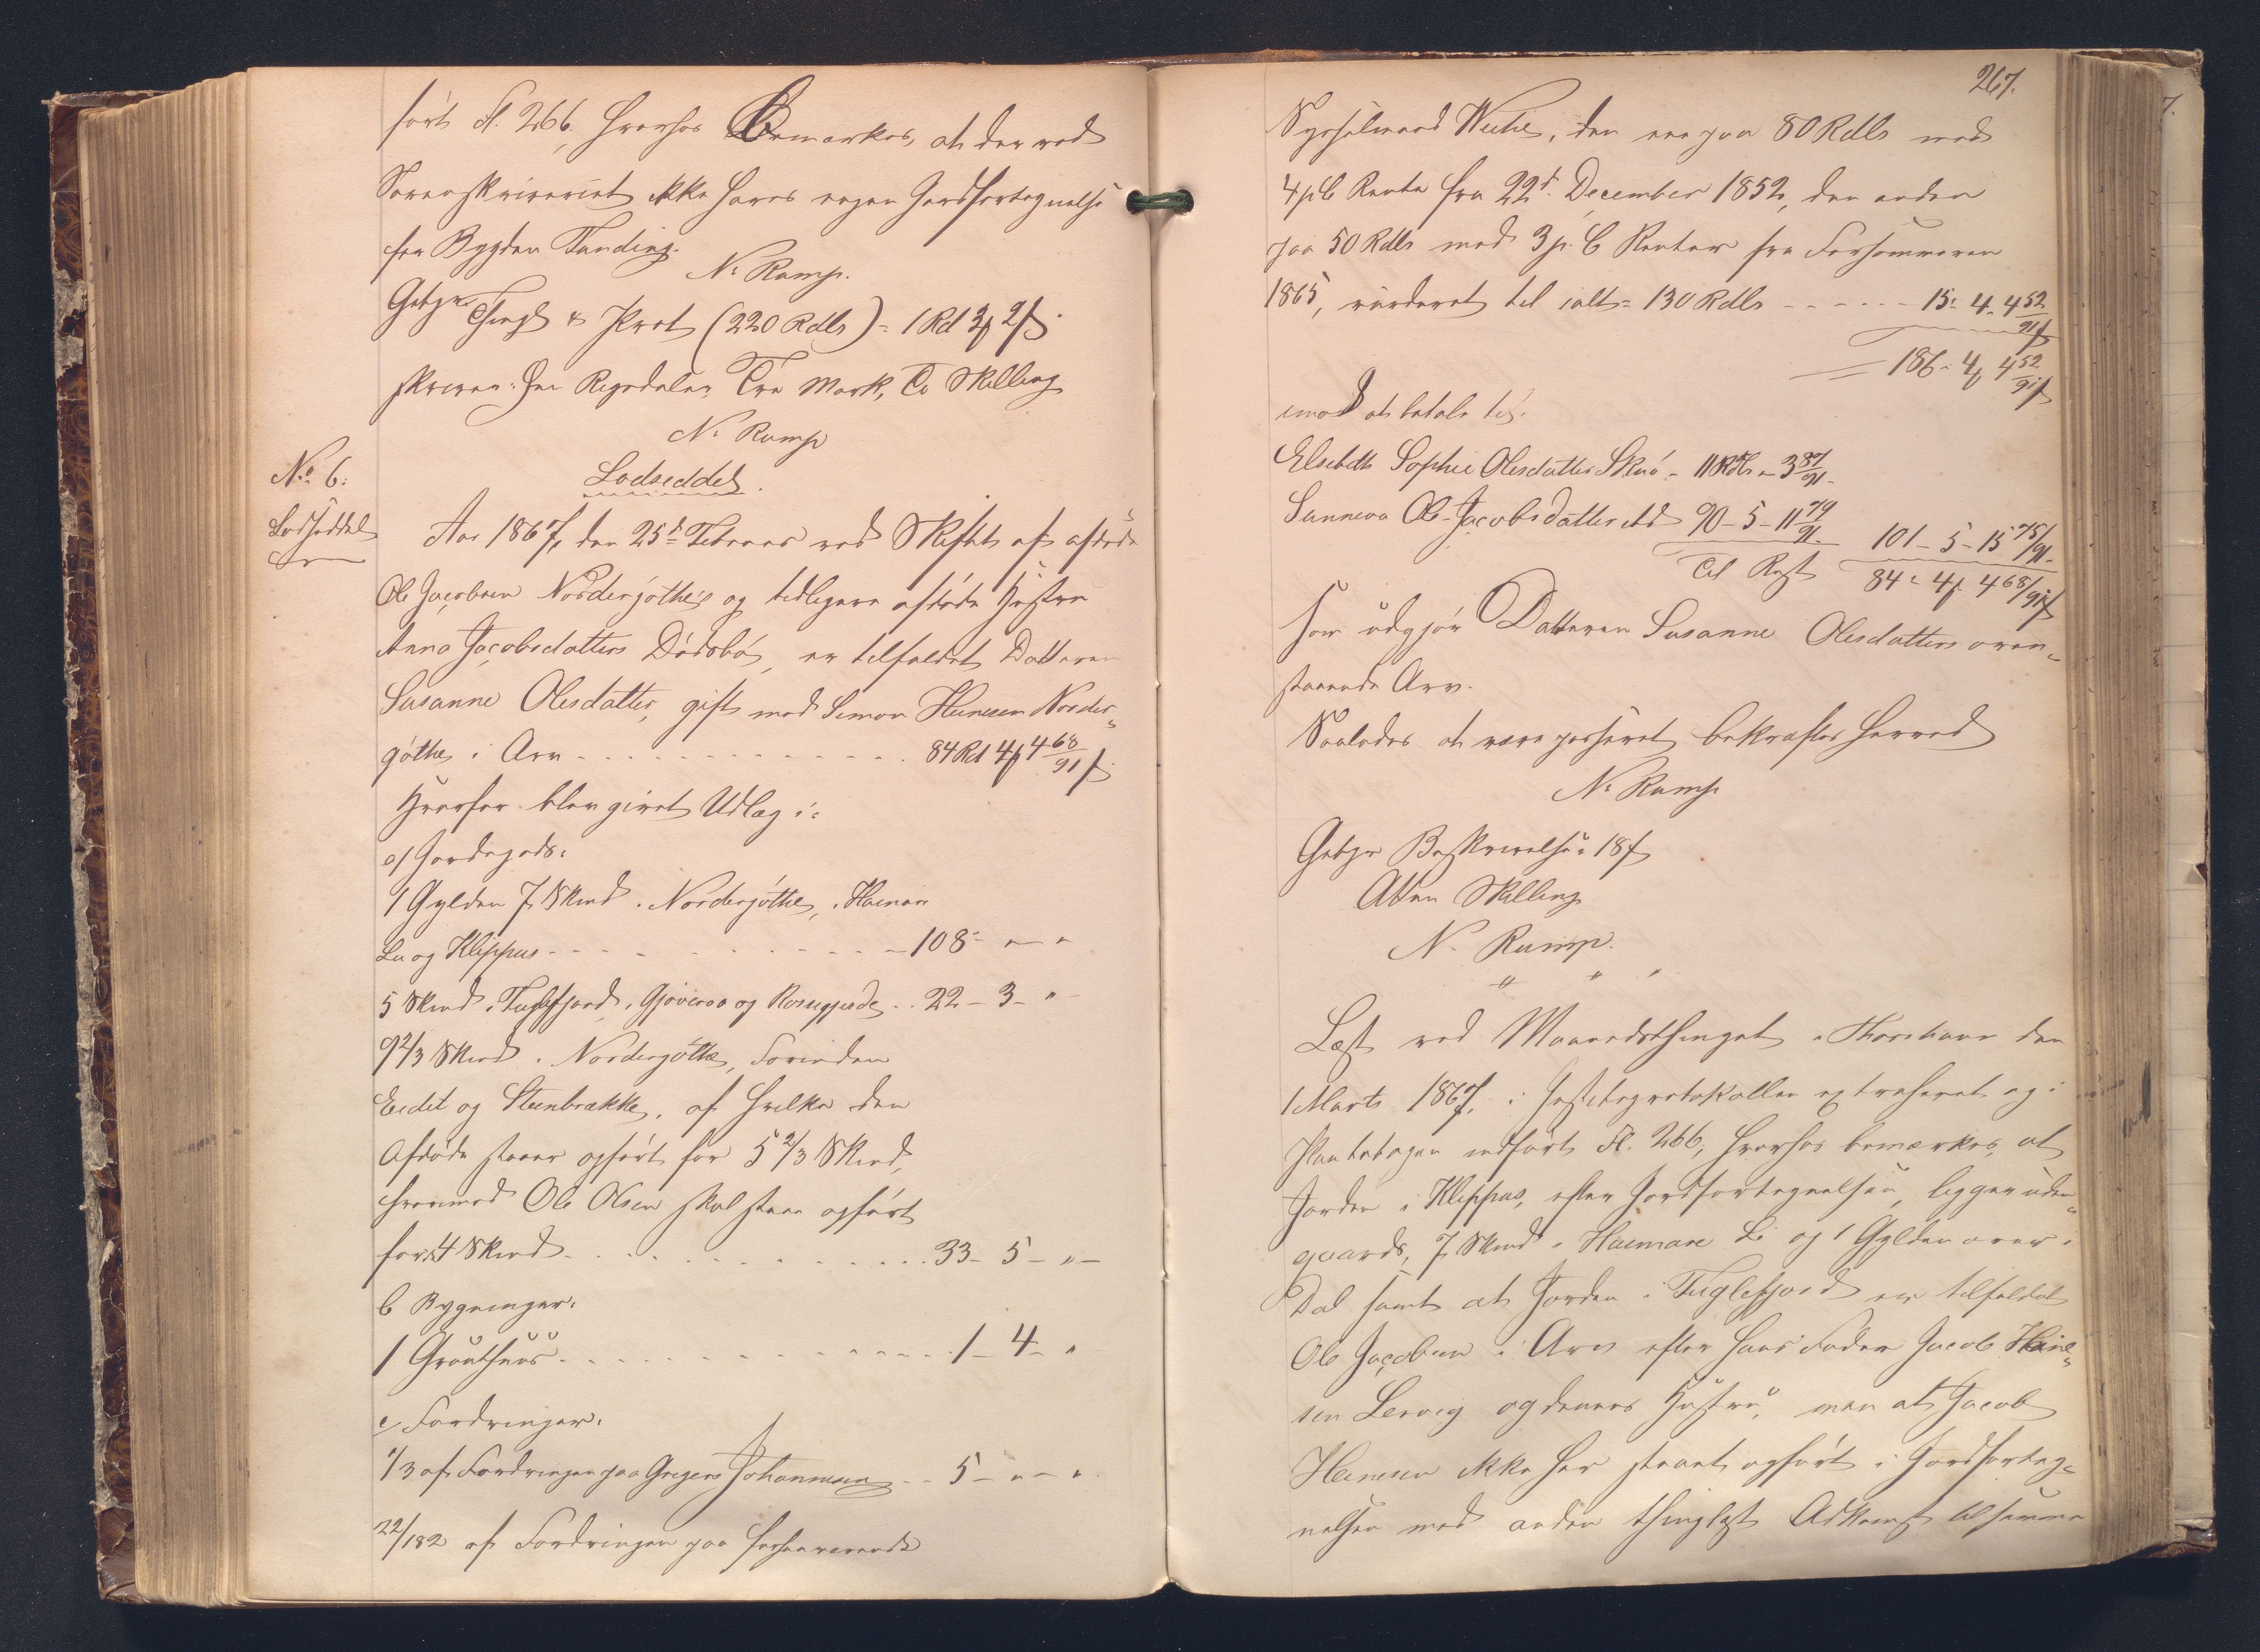 ført Fl. 266, hvorhos Bemærkes, at der ved
Sorenskriveriet ikke haves nogen Jordfortegnelse
for Bygden Funding.
N. Rump.
Gebyr Thingl & Prot (220 Rdlr) = 1 Rd 3 ₰ 2 ß.
skriver: Een Rigsdaler Tre Mark, To Skilling
N. Rump
No 6.
Lodseddel
Lodseddel.
Aar 1867, den 25d Februar ved Skiftet af afdøde
Ole Jacobsen Nordergøthes og tidligere afdøde Hustru
Anna Jacobsdatters Dødsbo, er tilfaldet Datteren
Susanne Olesdatter, gift med Simon Heinesen Norder-
gøthe, i Arv 84 Rd 4 ₰ 4 68/91 ß.
Hvorfor blev givet Udlæg i:
a/ Jordegods:
1 Gylden 7 Skind i Nordergøthe, i Haimare
Lii og Klippus 108 - " - "
5 Skind i Fuglefjord, i Gjøveraa og 22 - 3 - "
9 2/3 Skind i Nordergøthe, Forinden
Eidet og Steenbrække, af hvilke den
Afdøde staaer opført for 5 2/3 Skind,
hvorimod Ole Olsen skal staae opført
for 4 Skind 33 - 5 - " -
b Bygninger:
1 Grouthuus 1 - 4 - "
c/ Fordringer:
1/3 af Fordringen paa Gregers Johannesen 5 - " - "
22/182 af Fordringen paa forhenværende
267.
Sysselmand Weihe, den ene paa 80 Rdlr med
4 p C Rente fra 22d December 1852, den anden
paa 50 Rdlr med 3 p. C Renter fra Forsommeren
1865, vurderet til ialt = 130 Rdlr 15 - 4 - 4 52/91 ß
= 186 - 4 ₰ 4 52/91 ß
imod at betale til:
Elsebeth Sophie Olesdatter Skuø - 11 Rdlr - " - 3 87/91 -
Sunneva Ole-Jacobsdatter ibd 90 - 5 - 11 79/91 - 101 - 5 - 15 75/91 -
Til Rest 84 - 4 ₰ 4 68/91 ß
som udgjør Datteren Susanne Olesdatters oven-
staaende Arv.
Saaledes at være passeret bekræftes herved
N. Rump
Gebyr Beskrivelse: 18 ß
Atten Skilling
N. Rump.
" " "
Læst ved Maanedsthinget i Thorshavn den
1 Marts 1867, i Justitsprotokollen extraheret og i
Pantebogen indført Fl. 266, hvorhos bemærkes, at
Jorden i Klippus, efter Jordfortegnelsen, ligger uden-
gaards, 7 Skind i Haimare Li og 1 Gylden over i
Dal samt at Jorden i Fuglefjord er tilfaldet
Ole Jacobsen i Arv efter hans Fader Jacob Heine-
sen Lervig og dennes Hustru, men at Jacob
Heinesen ikke har staaet opført i Jordforteg-
nelsen med anden thinglæst Adkomst til samme